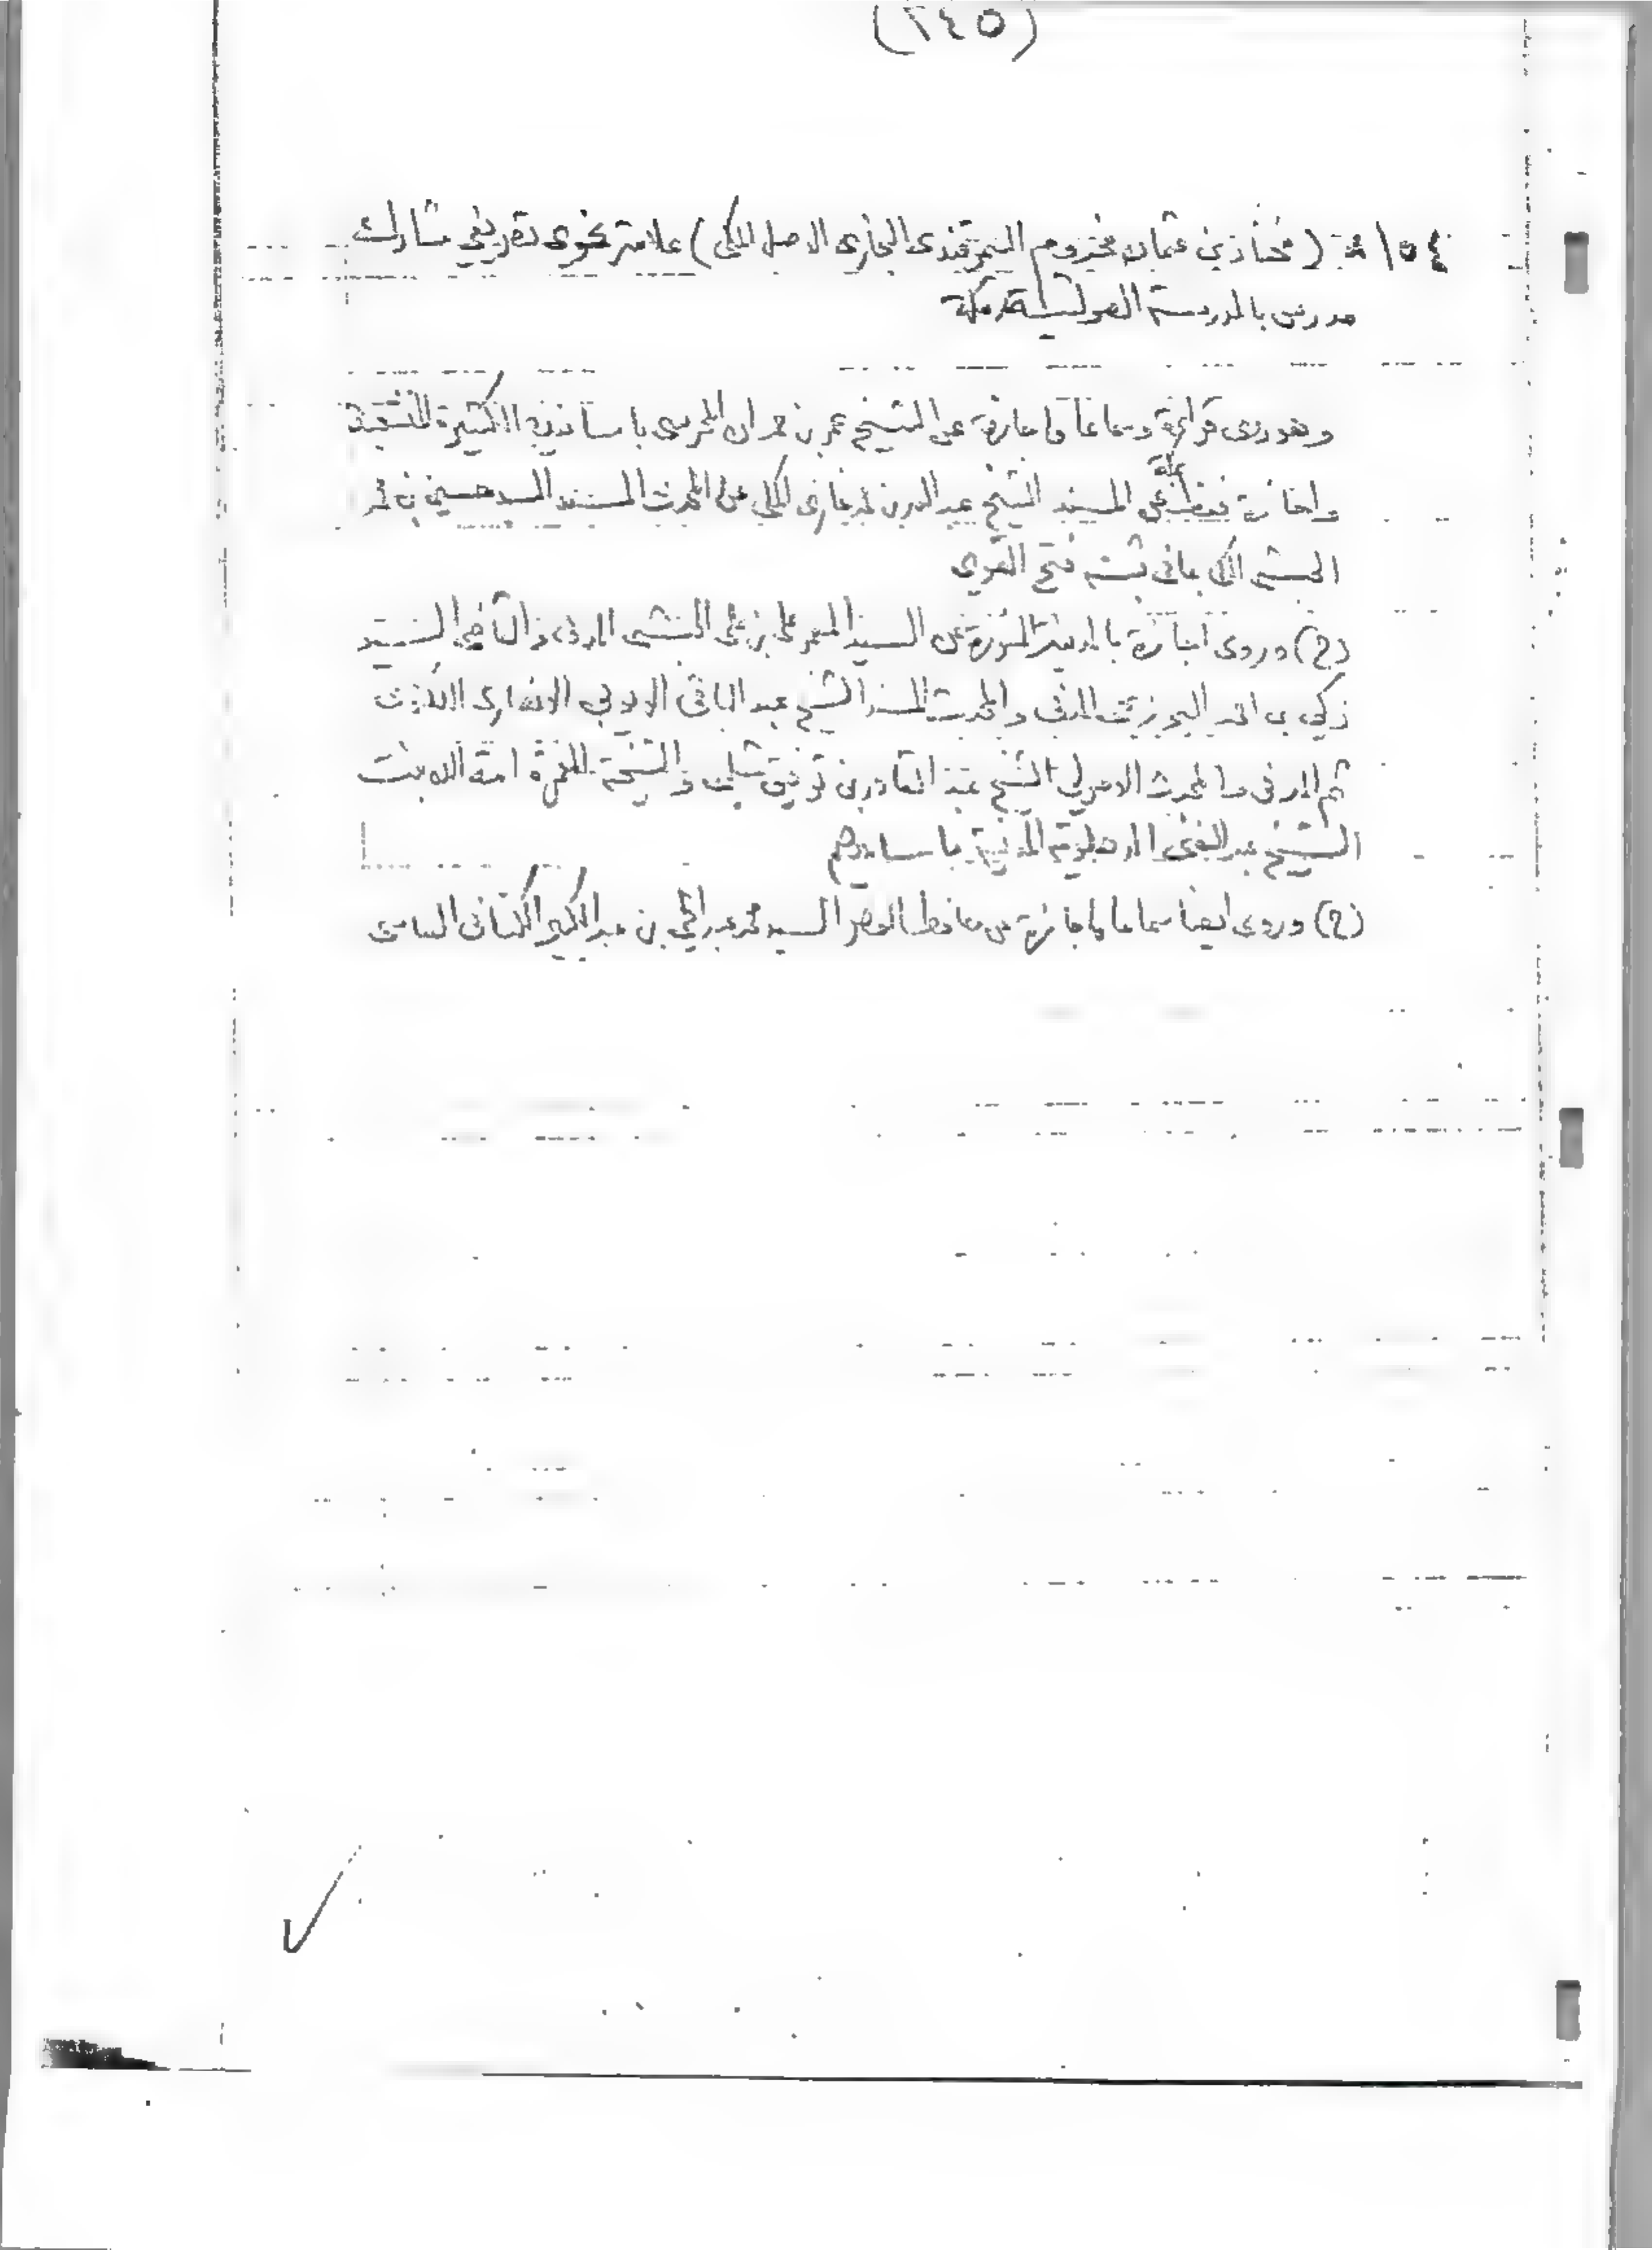 (٢٤٥)
١٥٤ :- (مختار بن عثمان مخدوم السمرقندي البخاري الاصل المكي) علامة نحوي مشارك
مدرس بالمدرسة الصولتية بمكة
وهو روى قراءة وسماعا واجازة عن الشيخ عمر بن حمدان المحرسي باسانيده الكثيرة
واجازة فقط عن المسند الشيخ عبدالله بن محمد غازي المكي عن المحدث المسند السيد حسين بن محمد
الحبشي المكي بما في ثبته فتح القوي
(ح) وروى اجازة بالمدينة المنورة عن السيد المعمر علي بن علي الحبشي المدني والقاضي السيد
زكي بن احمد البرزنجي المدني والمحدث المسند الشيخ عبد الباقي الايوبي الانصاري
ثم المدني والمحدث الاصولي الشيخ عبد القادر بن توفيق شلبي والشيخة المعمرة امة الله بنت
الشيخ عبد الغني الدهلوية المدنية باسانيدهم
(ح) وروى ايضا سماعا واجازة عن حافظ العصر السيد محمد عبد الحي بن عبد الكبير الكتاني الفاسي